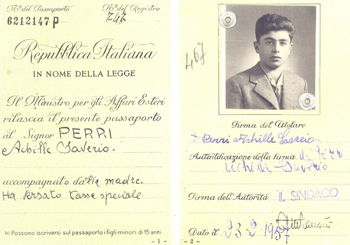 N.º del Passaporto
N.º del Registro
6212147 P
747
Repubblica Italiana
IN NOME DELLA LEGGE
Il Ministro per gli Affari Esteri
rilascia il presente passaporto
al Signor PERRI
Achille Saverio.
accompagnato dalla madre.
Ha versato tassa speciale.
(1) Possono iscriversi sul passaporto i figli minori di 15 anni.
- 1 -
467
Firma del Titolare
Perri Achille Saverio
Autentificazione della firma
Achille Saverio
Firma dell'Autorità IL SINDACO
Dato il 1957
- 2 -